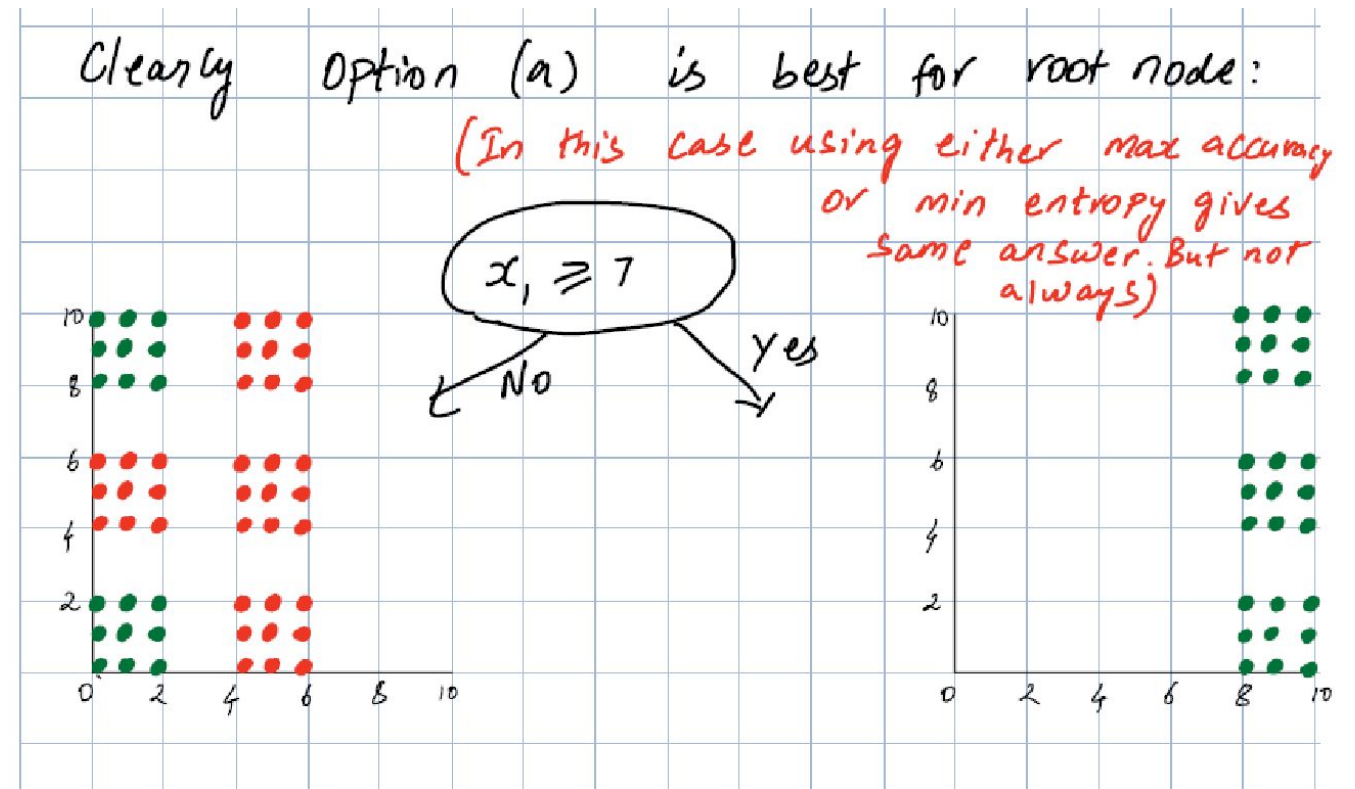 Clearly Option (a) is best for root node:
(In this case using either max accuracy
or min entropy gives
same answer. But not
always)
x₁ ⩾ 7
No
Yes
10
8
6
4
2
0 2 4 6 8 10
10
8
6
4
2
0 2 4 6 8 10